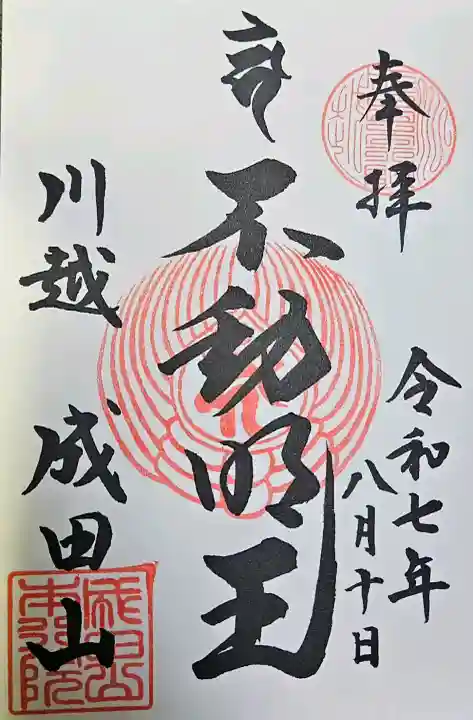 奉拝
令和七年
八月十日
不動明王
川越 成田山